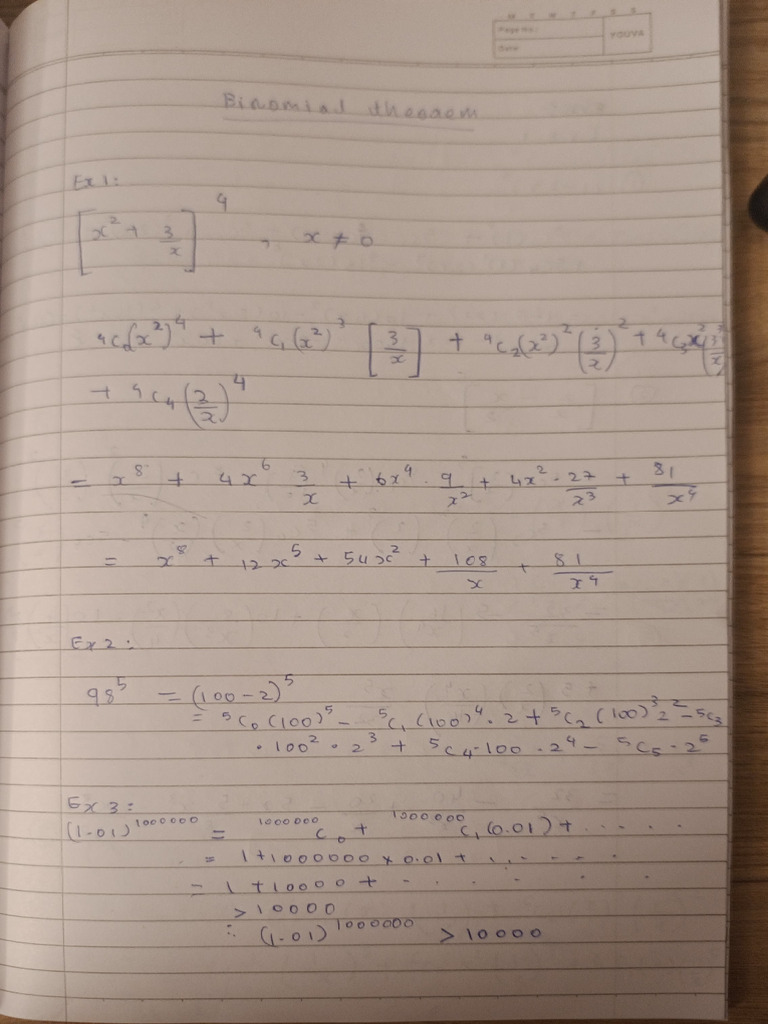 M T W T F S S
Page No.:
YOUVA
Date:
Binomial theorem
Ex 1:
[x² + 3/x]⁴, x ≠ 0
⁴C₀(x²)⁴ + ⁴C₁(x²)³ [3/x] + ⁴C₂(x²)² (3/x)² + ⁴C₃x²(3/x)³
+ ⁴C₄(2/x)⁴
= x⁸ + 4x⁶ 3/x + 6x⁴ · 9/x² + 4x² · 27/x³ + 81/x⁴
= x⁸ + 12x⁵ + 54x² + 108/x + 81/x⁴
Ex 2:
98⁵ = (100-2)⁵
= ⁵C₀(100)⁵ - ⁵C₁(100)⁴ · 2 + ⁵C₂(100)³2² - ⁵C₃
· 100² · 2³ + ⁵C₄·100 · 2⁴ - ⁵C₅ · 2⁵
Ex 3:
(1.01)¹⁰⁰⁰⁰⁰⁰ = ¹⁰⁰⁰⁰⁰⁰C₀ + ¹⁰⁰⁰⁰⁰⁰C₁(0.01) + ......
= 1+1000000 × 0.01 + ......
= 1 + 10000 + ......
> 10000
∴ (1.01)¹⁰⁰⁰⁰⁰⁰ > 10000